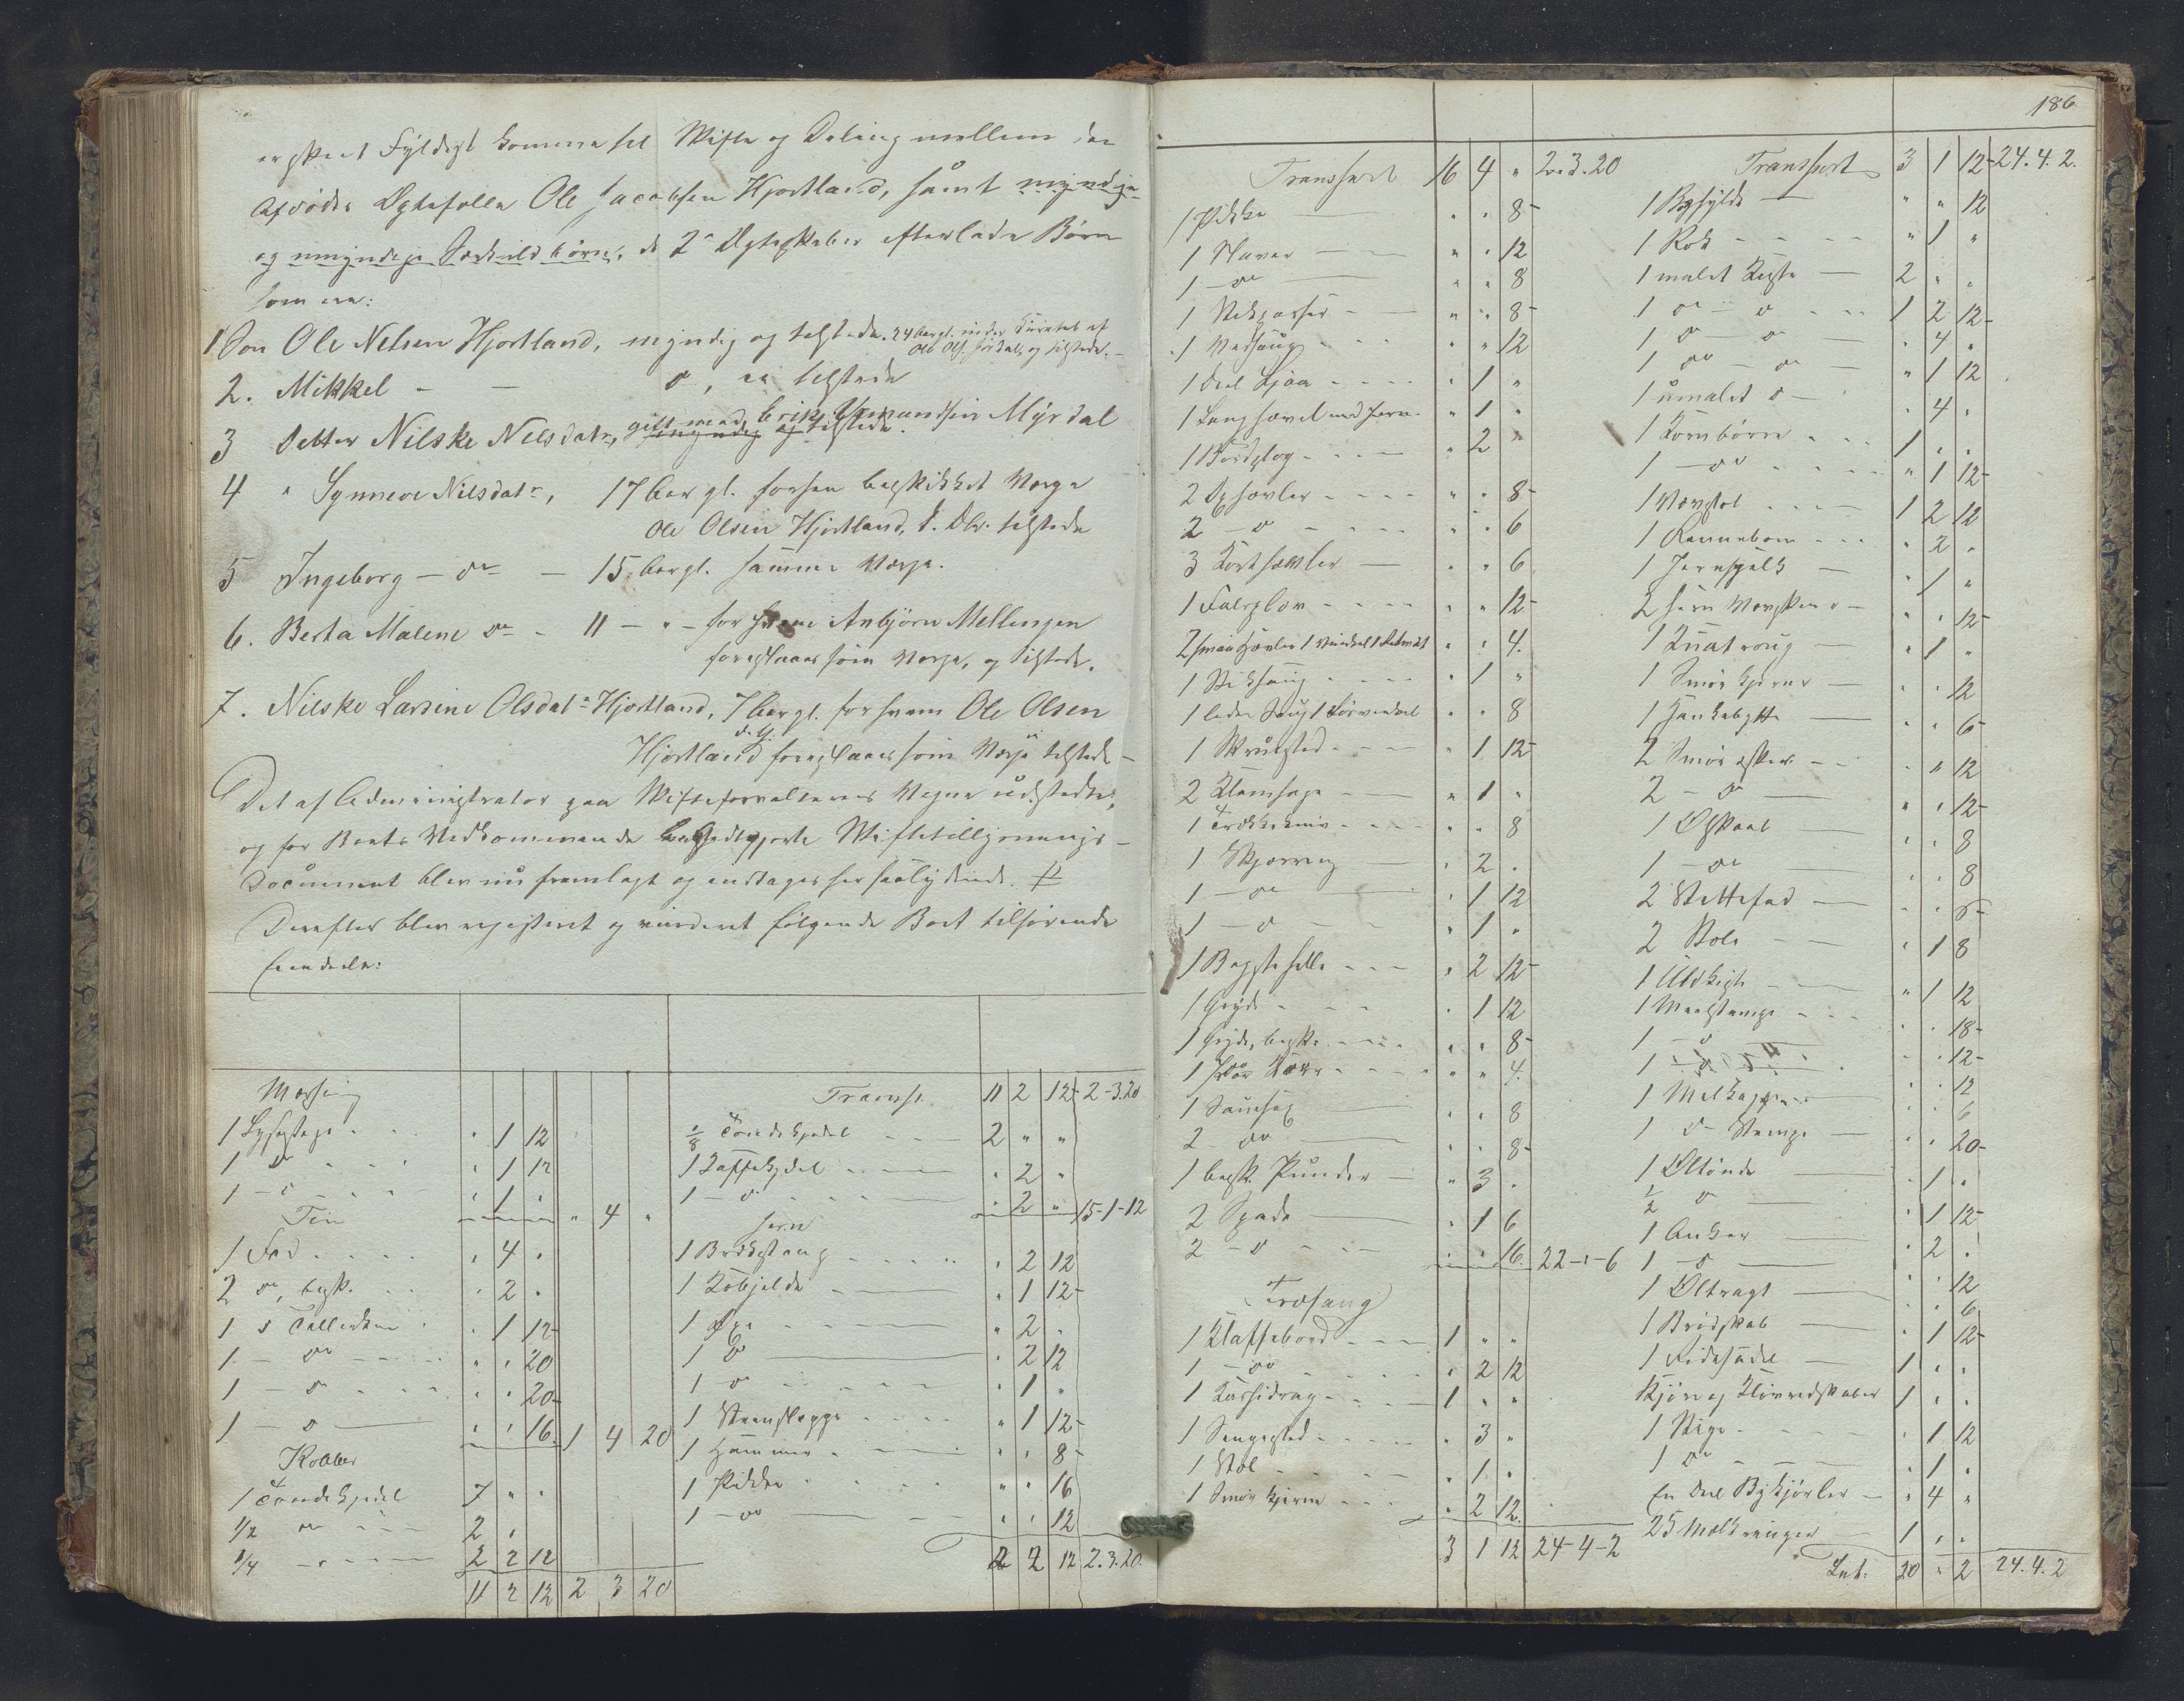 er skeet Fyldigt komme til Skifte og Deling mellem den
Afdødes Ægtefælle Ole Jacobsen Hjortland, samt myndige
og umyndige Særkuldbørn, de 2de Ægteskaber efterladte Børn
som ere:
1 Søn Ole Nelsen Hjortland, myndig og tilstede. 24 Aar gl. under Curatel af
Ole Ols. og tilstede.
2. Mikkel — — do, ei tilstede
3 Datter Nilske Nelsdatr, gift med Erik Amundsen Myrdal
myndig og tilstede.
4 " Synneve Nilsdatr, 17 Aar gl. forhen beskikket Værge
Ole Olsen Hjortland, tilstede
5 Ingeborg — do — 15 Aar gl. samme Værge.
6. Berta Malene do - 11 — " — for hvem Anbjørn Mellingen
foreslaaes som Værge, og tilstede.
7. Nilske Larsine Olsdatr Hjortland, 7 Aar gl. for hvem Ole Olsen
Hjortland d. y. foreslaaes som Værge tilstede —
Det af Administrator paa Skifteforvalterens Vegne udstedte,
og for Boets Vedkommende Skiftetillysnings-
Document blev nu fremlagt og indtages her saalydende.
Derefter blev registeret og vurderet følgende Boet tilhørende
Eiendele:
Messing
1 Lysestage " 1 12
1 do " 1 12
1 - do " 1 " " 4 "
Tin
1 Fad " 4 "
2 do, besk. " 2 "
1 Tallerken " 1 12
1 - do " " 20
1 - do " " 20
1 - do " " 16 1 4 20
Kobber
1 Tøndekjedel 7 " "
1/2 do 2 "
1/4 - " 2 2 12
11 2 12 2 3 20
Transp. 11 2 12 2-3.20
1/8 Tøndekjedel 2 " "
1 Kaffekjedel " 2 "
1 - do " 2 " 15-1-12
Jern
1 Brækstang " 2 12
1 Kobjelde " 1 12
1 Øxe " 2 "
1 do " 2 12
1 - do " 1 "
1 Steenslegge " 1 12
1 Hammer " " 8
1 Pikke " " 16
1 - do " " 12
2 12 2.3.20
186
Transport 16 4 " 2.3.20
1 Pikke " " 8
1 Naver " " 12
1 - do " " 8
1 " " 8
1 Vedsaug " " 12
1 Deel Ljaa " 1 "
1 Langhøvel med Jern " 1 "
1 Bordplog " 2 "
2 Ophøvler " " 8
2 - do " " 6
3 Korthøvler " " 6
1 Falsplov " " 12
2 smaa Høvler 1 Vinkel 1 " " 4.
1 Stiksaug " 1 "
1 liden Saug 1 " " 8
1 Skruested " 1 12
2 " 1 "
1 Trækkekniv " " 8
1 Skjerring " 2 "
1 - do " 1 12
1 - do " 1 "
1 Bagstehelle " 2 12
1 Gryde " 1 12
1 Gryde, besk. " " 8
1 " " 4.
1 Sauesax " " 8
2 do " " 8
1 besk. Punder " 3 "
2 Spade " 1 6
2 - do " " 16. 22-"-6
Træfang
1 Klaffebord 1 " "
1 - do " 2 12
1 1 " "
1 Sengested " 3 "
1 Stol " 1 "
1 Smørkjerne " 2 12.
3 1 12 24-4-2
Transport 3 1 12 24.4.2.
1 " " 12
1 Rok " 1 "
1 malet Kiste 2 " "
1 do - do 1 2 12
1 do do " 4 "
1 do - do " 1 12
1 umalet do " 4 "
1 Kornbøre 1 " "
1 - do " 1 12
1 Vævstol 1 2 12
1 Rennebom " 2 "
1 " 1 "
2 " " 12
1 " 1 "
1 Smørkjerne " " 12
1 " " 6
2 Smørasker " " 12
2 - do " " 12
1 Ølskaal " " 8
1 - do " " 8
2 " " 6
2 Stole " 1 8
1 Uldkiste " 1 12
1 " " 18
1 - do " " 12
1 - do " " 12
1 " " 6
1 do Stampe " " 20
1 Øltønde " 1 "
1/2 do " 1 12
1 Anker " 2 "
1 - do " " 12
1 Øltragt " " 6
1 Brødskab " 1 12
1 Ridesadel 1 " "
Kjøre og Kløvredskaber 1 " "
1 Stige " 1 12
1 do " 1 "
En Deel Bykjørler " 4 "
25 Mælkringer 1 " "
Lat. 20 " 2 24.4.2